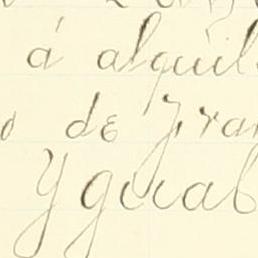 á alquile
o de Fran
Ygual